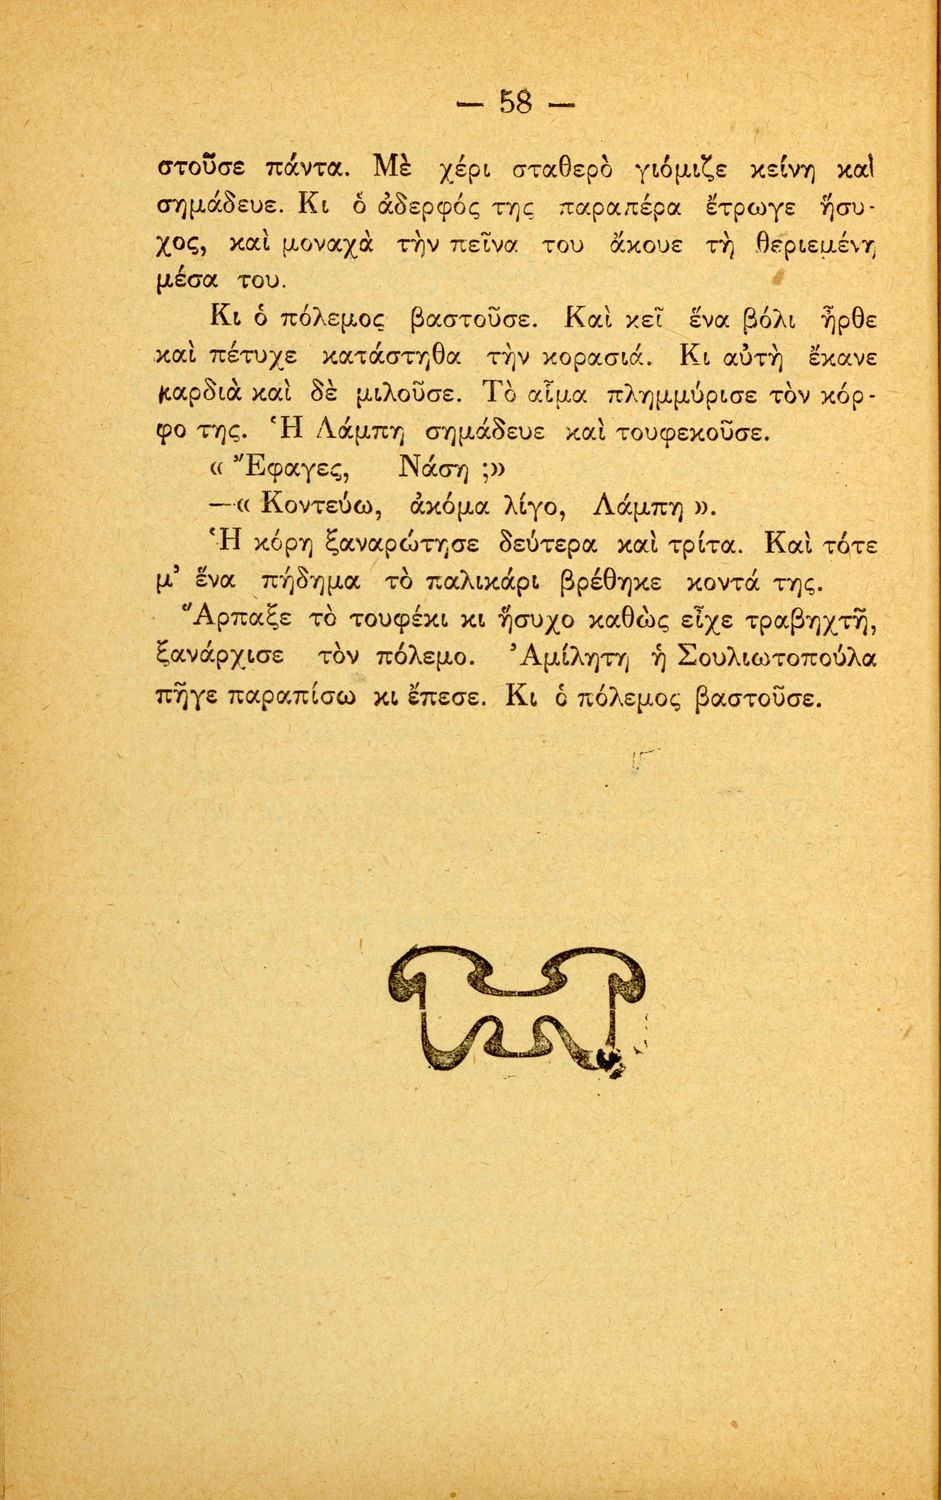 — 58 —
στοῦσε πάντα. Μὲ χέρι σταθερὸ γιόμιζε κείνη καὶ
σημάδευε. Κι ὁ ἀδερφός της παραπέρα ἔτρωγε ἥσυ-
χος, καὶ μοναχὰ τὴν πεῖνα του ἄκουε τὴ θεριεμένη
μέσα του.
Κι ὁ πόλεμος βαστοῦσε. Καὶ κεῖ ἕνα βόλι ἦρθε
καὶ πέτυχε κατάστηθα τὴν κορασιά. Κι αὐτὴ ἔκανε
καρδιὰ καὶ δὲ μιλοῦσε. Τὸ αἷμα πλημμύρισε τὸν κόρ-
φο της. Ἡ Λάμπη σημάδευε καὶ τουφεκοῦσε.
« Ἔφαγες, Νάση ;»
—« Κοντεύω, ἀκόμα λίγο, Λάμπη ».
Ἡ κόρη ξαναρώτησε δεύτερα καὶ τρίτα. Καὶ τότε
μ’ ἕνα πήδημα τὸ παλικάρι βρέθηκε κοντά της.
Ἅρπαξε τὸ τουφέκι κι ἥσυχο καθὼς εἶχε τραβηχτῆ,
ξανάρχισε τὸν πόλεμο. Ἀμίλητη ἡ Σουλιωτοπούλα
πῆγε παραπίσω κι ἔπεσε. Κι ὁ πόλεμος βαστοῦσε.